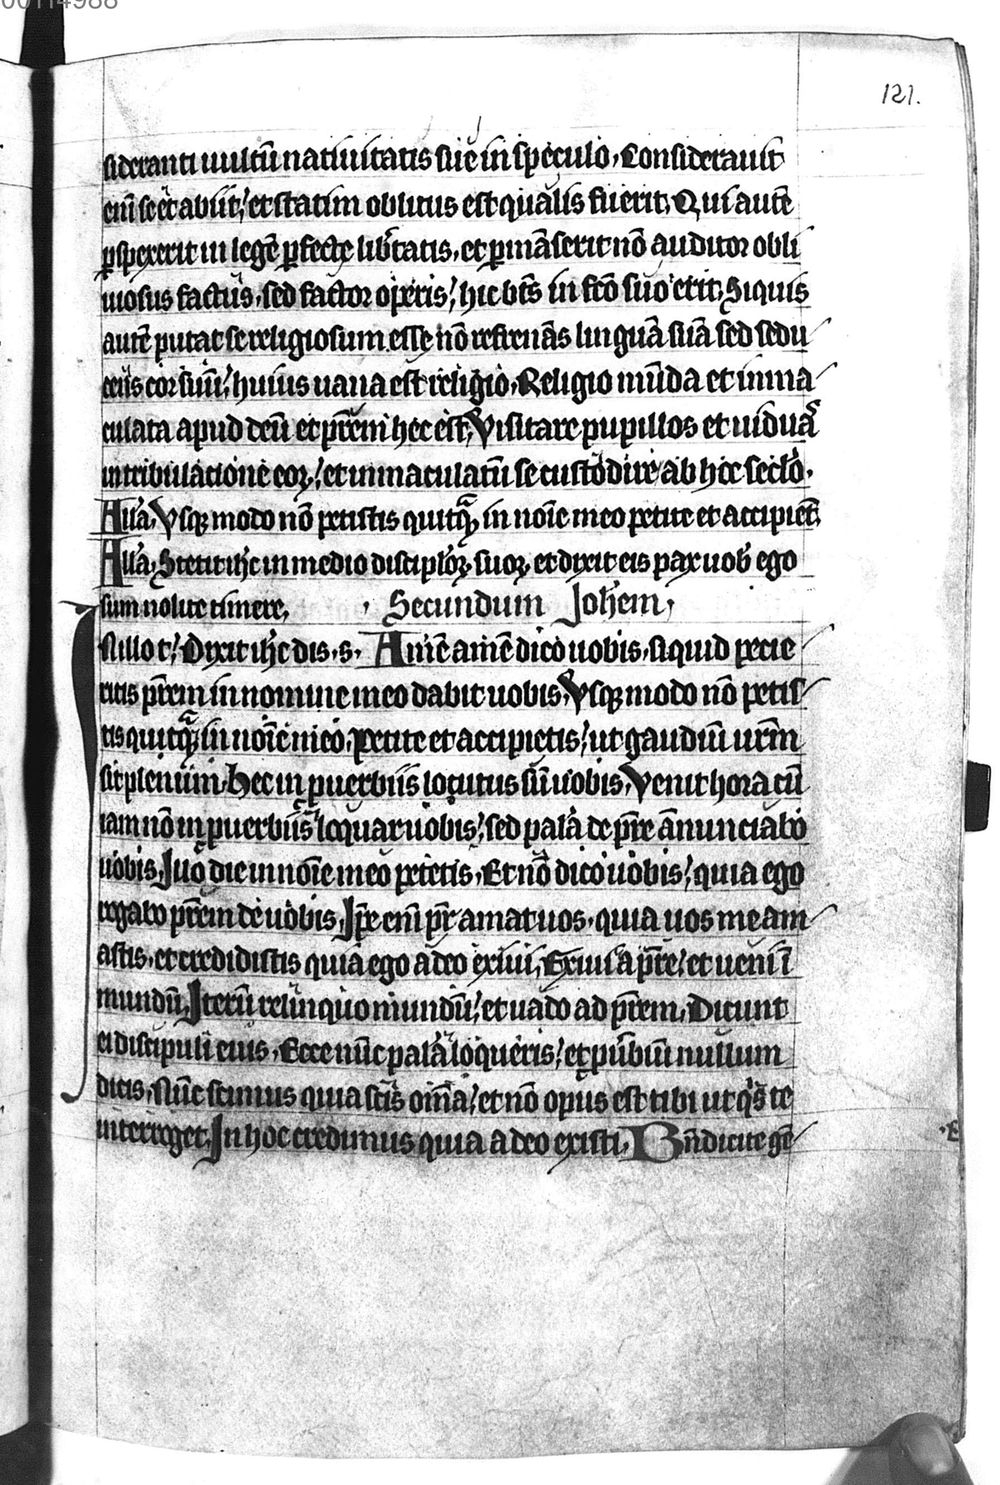 00114988
121.
sideranti uultū natiuitatis suę in speculo, Considerauit
eni̅ se et abiit, et statim oblitus est qualis fuerit, Qui autē
ꝑspexerit in legē ꝑfectę lib̃tatis, et ꝑmāserit nō auditor obli
uiosus factus, sed factor operis, hic bt̄s in fc̄o suo erit, Siquis
autē putat se religiosum esse nō refrenās linguā suā sed sedu
cens cor suū, huius uana est religio, Religio mūda et inma
culata apud deū et pr̄em hec est, Visitare pupillos et uiduas
in tribulatione eoꝝ, et inmaculatū se custodire ab hoc sec̄lo.
All̄a, Vsqꝫ modo nō petistis quicqᷓ in noīe meo petite et accipiet̄,
All̄a, Stetit ih̄c in medio discipl̄oꝝ suoꝝ, et dixit eis pax uob̄ ego
sum nolite timere, Secundum Joh̄em,
N illo t, Dixit ih̄c dis. s. Amē amē dico uobis, siquid petie
ritis pr̄em in nomine meo dabit uobis, Vsqꝫ modo nō petis
tis quicqᷓ in noīe meo, Petite et accipietis, ut gaudiū ur̄m
sit plenum, Hec in ꝓuerbiis locutus sū uobis, Venit hora cū
iam nō in ꝓuerbiis loquar uobis, sed palā de pr̄e ānunciabo
uobis, In illo die in noīe meo petetis, Et nō dico uobis, quia ego
rogabo pr̄em de uobis, Ip̄e eni̅ pr̄ amat uos, quia uos me am
astis, et credidistis quia ego a deo exiui, Exiui a pr̄e, et ueni ī
mundū, Iterū relinquo mundū, et uado ad pr̄em, Dicunt
ei discipuli eius, Ecce nūc palā loqueris, et ꝓuerbiū nullum
dicis, Nūc scimus quia scis om̄ia, et nō opus est tibi ut qis te
interroget, In hoc credimus quia a deo existi, Bn̄dicite gē